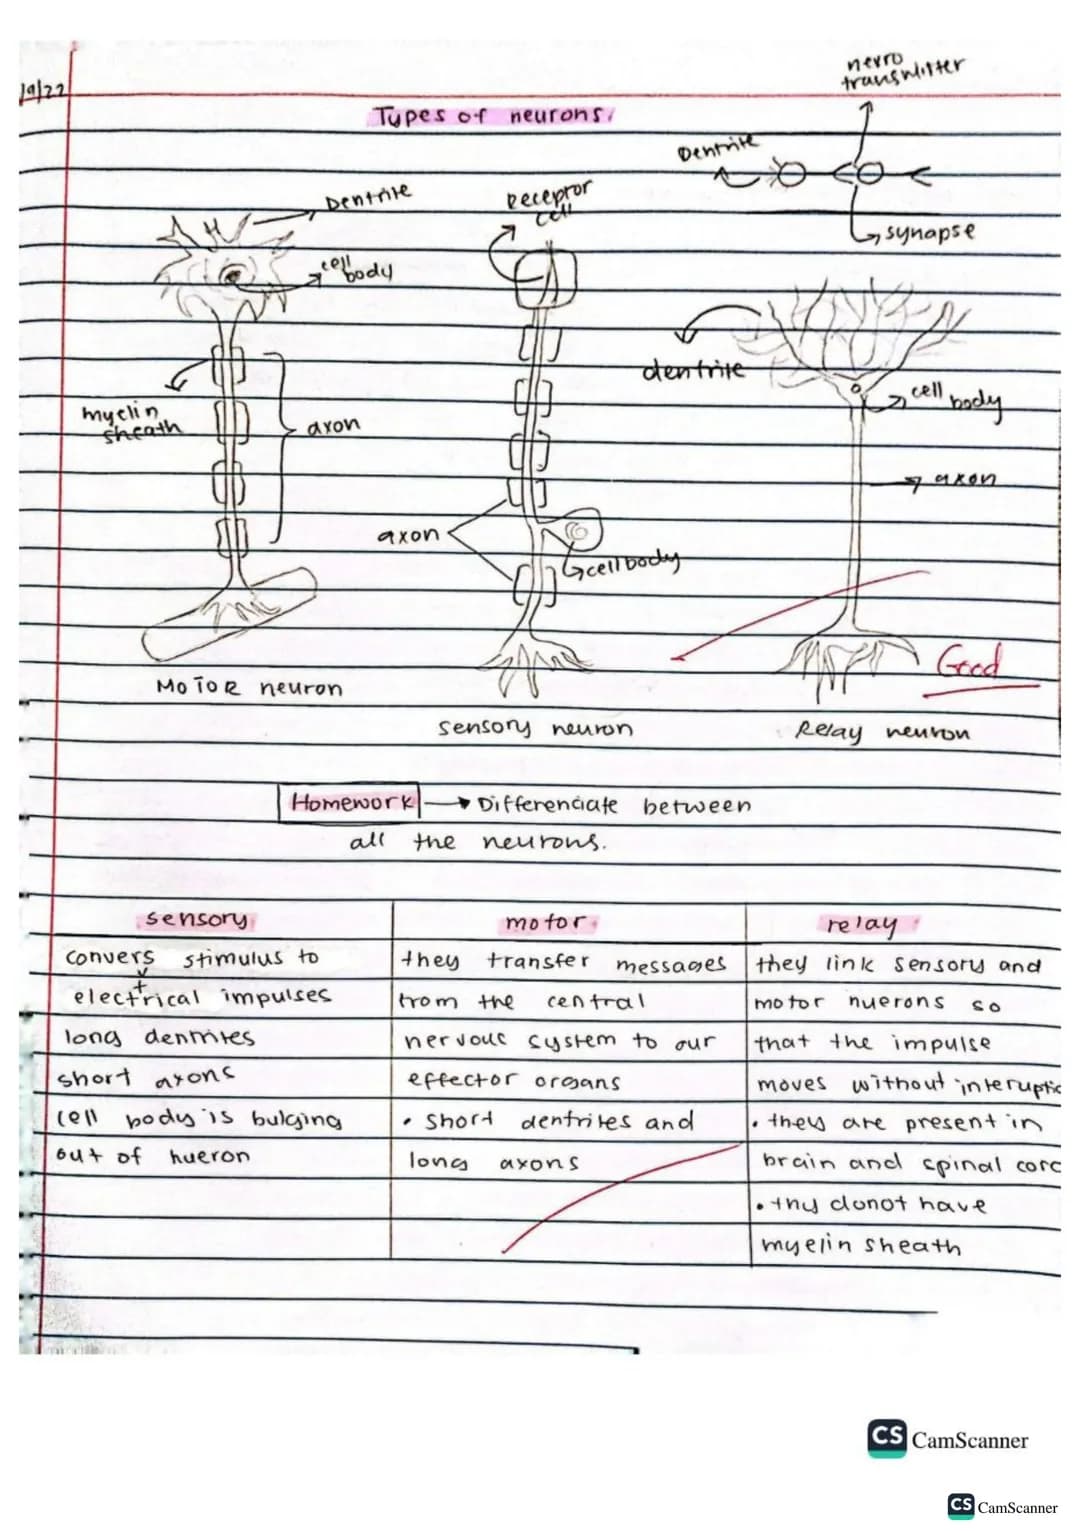 19/22
nevro
transmitter
Types of neurons.
Dentrite
synapse
Dentrite
Receptor
cell
cell
body
dentrite
cell body
myelin
sheath
axon
axon
axon
cell body
Good
MOTOR neuron
sensory neuron
Relay neuron
Homework → Differenciate between
all the neurons.
sensory
convers stimulus to
t
electrical impulses
long dentrites
short axons
cell body is bulging
out of nueron
motor
they transfer messages
from the central
nervous system to our
effector organs
• short dentrites and
long axons
relay
they link sensory and
motor nuerons so
that the impulse
moves without interuptio
• they are present in
brain and spinal corc
• thy donot have
myelin sheath
CS CamScanner
CS CamScanner